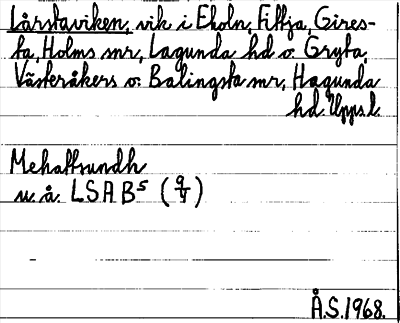 Lårstaviken, vik i Ekoln, Fittja, Gires-
ta, Holms snr, Lagunda hd o. Gryta,
Västeråkers o. Balingsta snr, Hagunda
hd. Upps.l.
Mehallsundh
u. å. LSAB⁵ (9/V)
Å.S. 1968.